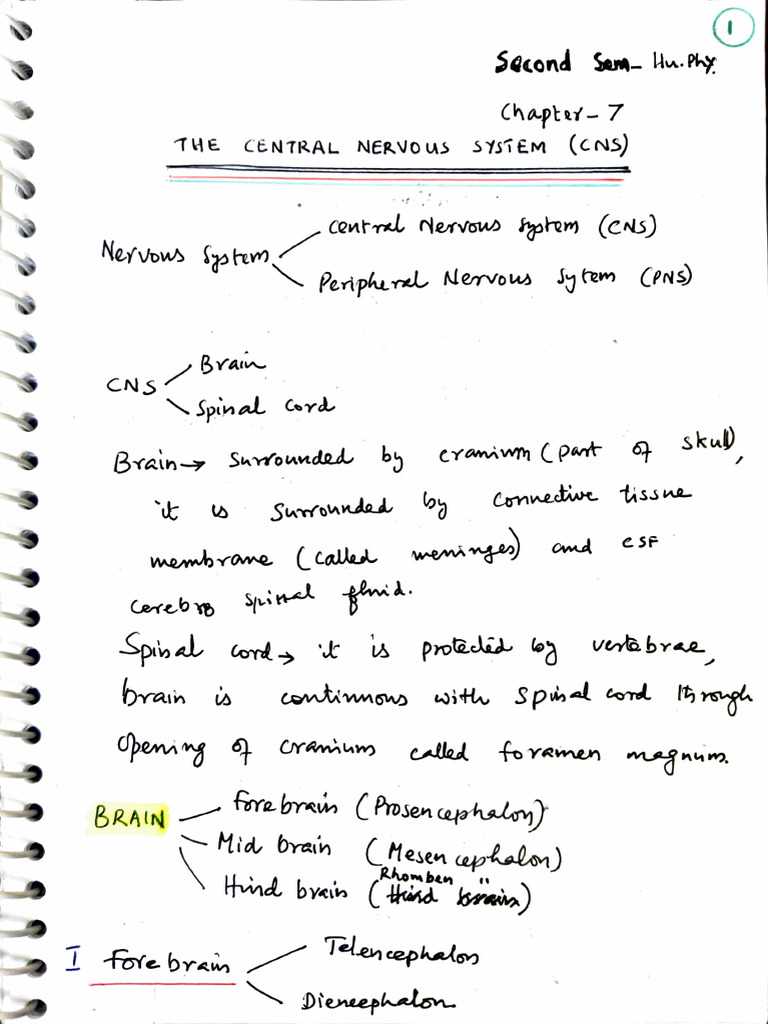 1
Second Sem- Hu.Phy.
Chapter-7
THE CENTRAL NERVOUS SYSTEM (CNS)
Central Nervous System (CNS)
Nervous System
Peripheral Nervous Sytem (PNS)
Brain
CNS
Spinal cord
Brain→ surrounded by cranium (part of skull),
it is surrounded by connective tissue
membrane (called meninges) and CSF
cerebro spinal fluid.
Spinal cord→ it is protected by vertebrae,
brain is continuous with spinal cord through
opening of cranium called foramen magnum.
Forebrain (Prosencephalon)
BRAIN
Mid brain (Mesencephalon)
Rhomben "
Hind brain (Hind brain)
Telencephalon
I Forebrain
Diencephalon